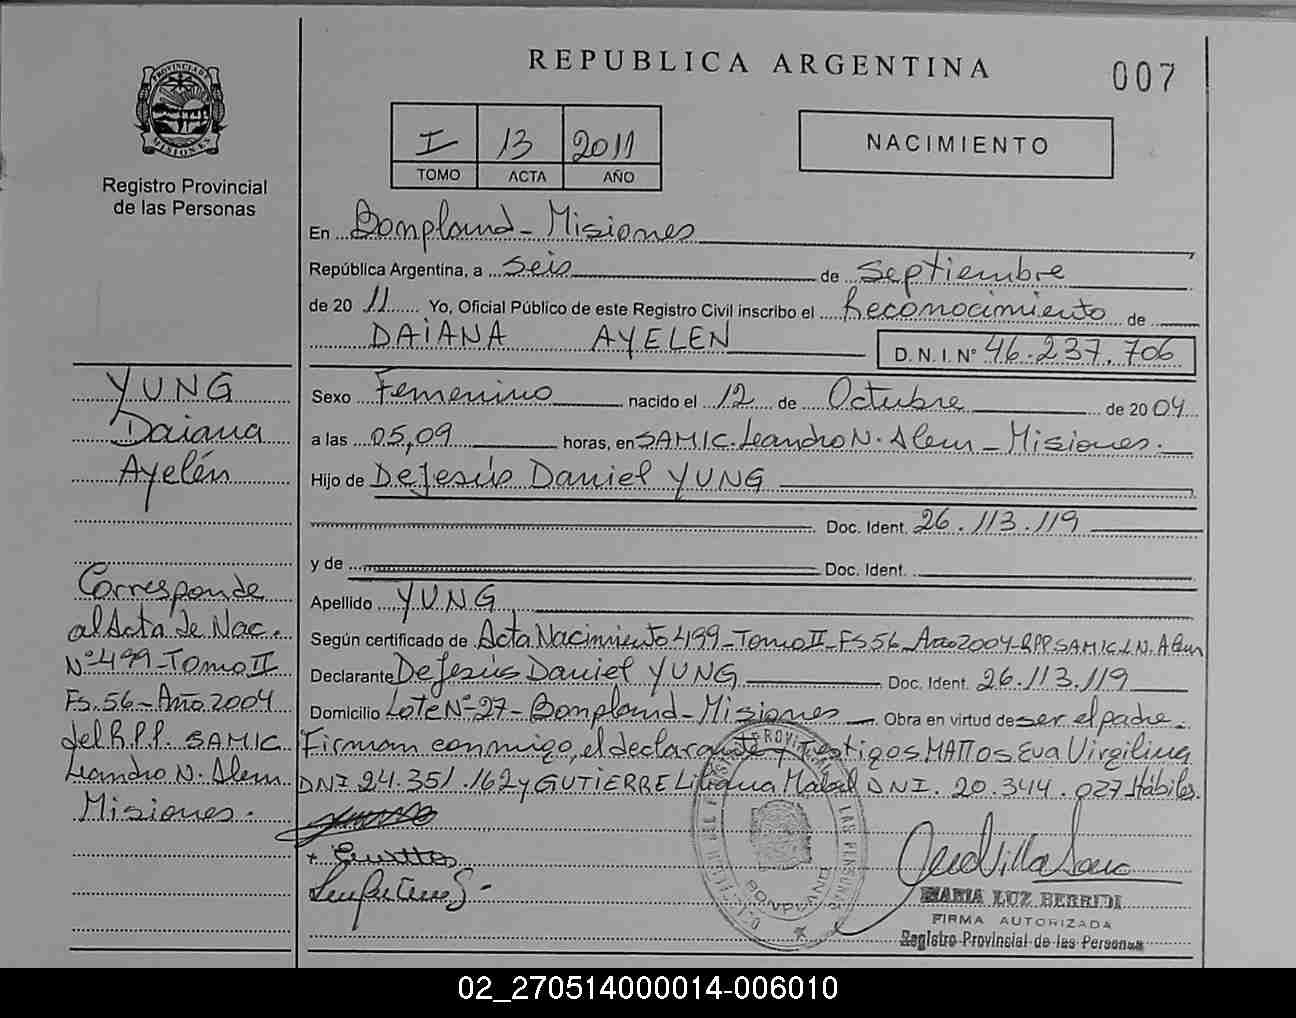 REPUBLICA ARGENTINA
007
PROVINCIA DE MISIONES
Registro Provincial
de las Personas
I 13 2011
TOMO ACTA AÑO
NACIMIENTO
En Bonpland - Misiones
República Argentina, a seis de septiembre
de 20 11 Yo, Oficial Público de este Registro Civil inscribo el Reconocimiento de
DAIANA AYELEN
D.N.I. Nº 46.237.706
Sexo Femenino nacido el 12 de Octubre de 2004
a las 05,09 horas, en SAMIC. Leandro N. Alem - Misiones.
Hijo de De Jesús Daniel YUNG
Doc. Ident. 26.113.119
y de Doc. Ident.
Apellido YUNG
Según certificado de Acta Nacimiento 499 - Tomo II - Fs 56 - Año 2004 - RPP. SAMIC L.N. Alem
Declarante De Jesús Daniel YUNG Doc. Ident. 26.113.119
Domicilio Lote Nº 27 - Bonpland - Misiones Obra en virtud de ser el padre.
Firman conmigo, el declarante y Testigos MATTOS Eva Virgilina
DNI 24.351.162 y GUTIERRE Liliana Mabel DNI. 20.344.027 Hábiles.
YUNG
Daiana
Ayelén
Corresponde
al Acta de Nac.
Nº 499 - Tomo II
Fs. 56 - Año 2004
del R.P.P. SAMIC
Leandro N. Alem
Misiones.
BONPLAND
MARIA LUZ BERRIDI
FIRMA AUTORIZADA
Registro Provincial de las Personas
02_270514000014-006010